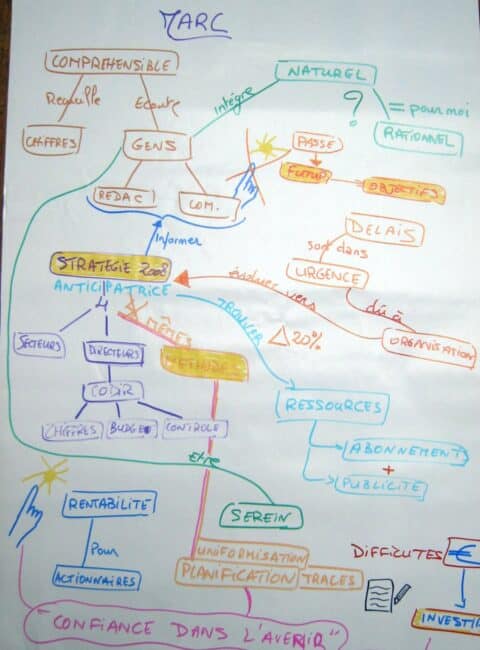 MARC
COMPREHENSIBLE
NATUREL
Intégre
?
= pour moi
Ecoute
CHIFFRES
GENS
RATIONNEL
PASSE
FUTUR
OBJECTIFS
REDAC
COM.
DELAIS
Informer
sont dans
STRATEGIE 2008
URGENCE
ANTICIPATRICE
évoluer vers
dû à
4
TROUVER
MÊMES
△ 20%
ORGANISATION
SECTEURS
DIRECTEURS
METHODE
CODIR
RESSOURCES
CHIFFRES
BUDGET
CONTROLE
ABONNEMENT
+
PUBLICITE
ETRE
RENTABILITE
SEREIN
Pour
UNIFORMISATION
DIFFICUTES
€
ACTIONNAIRES
PLANIFICATION TRACES
INVESTI
"CONFIANCE DANS L'AVENIR"